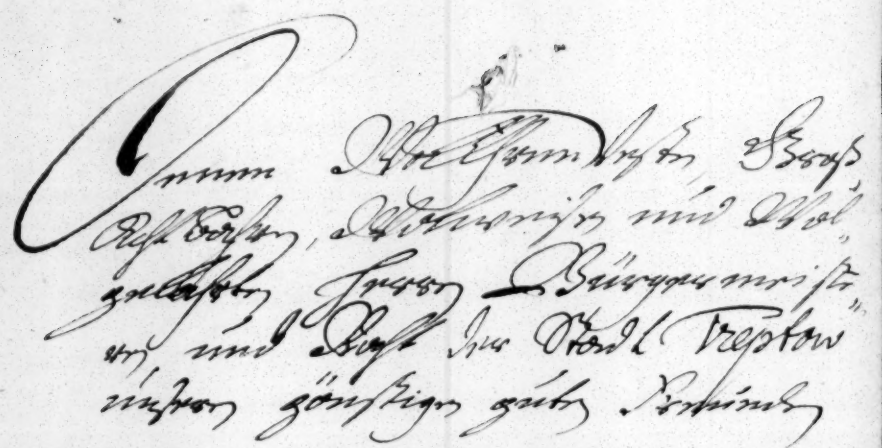 Denen WolEhrnvesten, Groß
Achtbahren, Wolweisen und Wol-
gelahrten Herren Bürgermeiste-
ren und Raht der Stadt Treptow
unseren günstigen guten Freunden